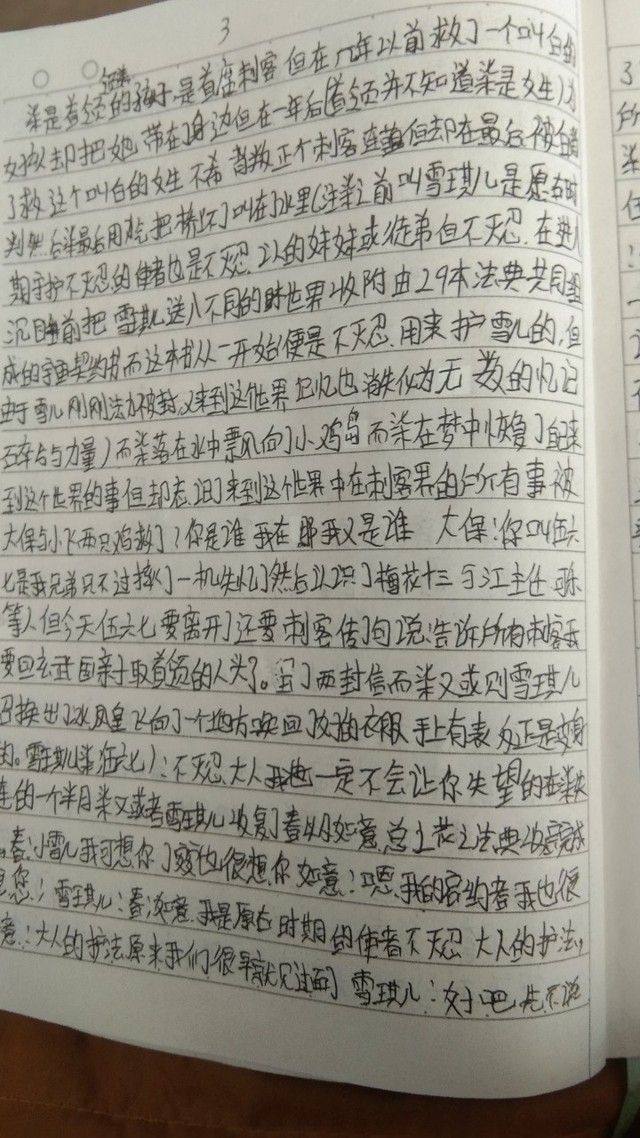 3
柒是首领的孩子是首席刺客但在几年以前救了一个叫白的
女孩却把她带在身边但在一年后(首领并不知道柒是女生)为
了救这个叫白的女生不希 整个刺客 但却在最后被白
判然后柒最后用 把桥 了叫在了水里(注柒之前叫雪琪儿是愿古时
期守护不灭忍的使者也是不灭忍.以的妹妹或徒弟但不灭忍.在进入
沉睡前把雪琪儿送入不同的时世界收附由29本法典共同组
成的宇宙契约书而这本书从一开始便是不灭忍.用来护雪儿的,但
由于雪儿刚刚法力被封又来到这他界记忆也消失化为无数的忆记
碎片与力量)而柒落在水中飘向了小鸡岛而柒在梦中恢复了自来
到这个世界的事但却忘记了来到这个世界中在刺客界的所有事被
大保与小飞两只鸡救了?你是谁我在那我又是谁 大保:你叫伍六
七是我兄弟只不过摔了一机失忆了然后认识了梅花十三与江主任可乐
等人但今天伍六七要离开了还要刺客传了句说:告诉所有刺客我
要回玄武国亲手取首领的人头了。留了两封信而柒又或则雪琪儿
召换出了冰凤皇飞向了一个地方唤回了女孩的衣服手上有表 正是变身
的。雪琪儿(柒伍六七):不灭忍.大人我也一定不会让你失望的在柒失
连的一个半月柒又或者雪琪儿收复了春如意总上花之法典收完成
。春:小雪儿我可想你了 也很想你如意:嗯.我的容约者我也很
想您:雪琪儿:春.如意.我是原古时期的使者不灭忍大人的护法,
意:大人的护法原来我们很早就见过面了 雪琪儿:好吧先不说